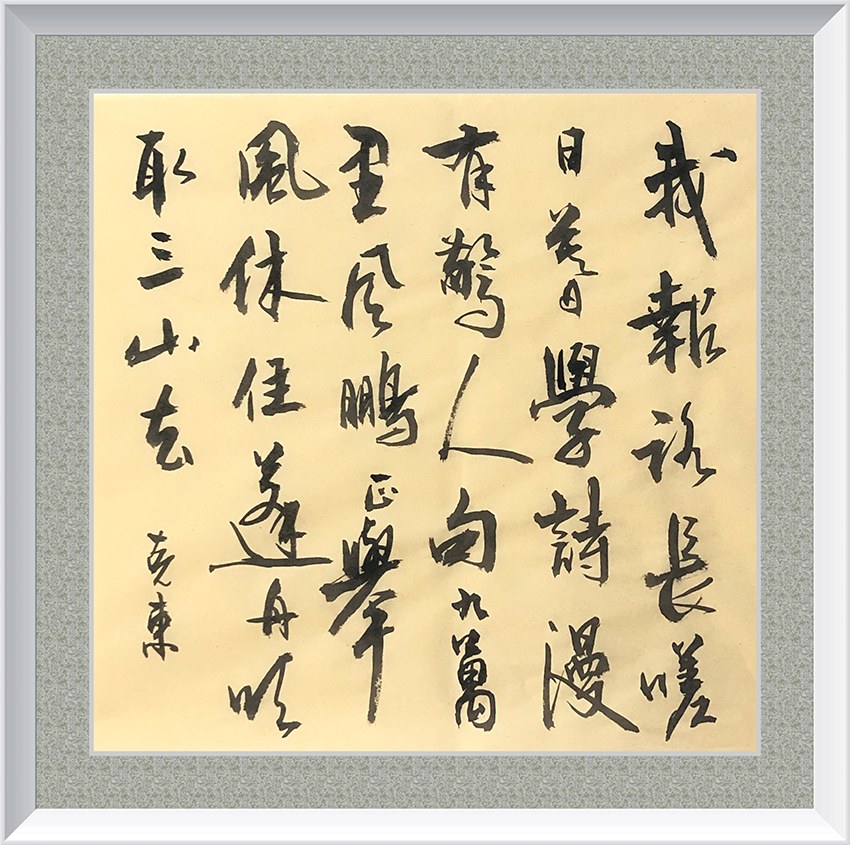 我報路長嗟
日暮學詩漫
有驚人句九萬
里风鵬正舉
風休住蓬舟吹
取三山去
克東